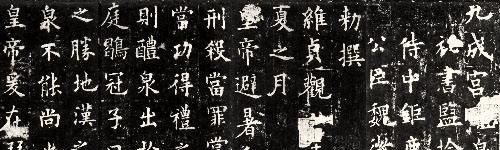 九成宮
秘書監檢
侍中鉅鹿
公臣魏徵
勑撰
維貞觀
夏之月
皇帝避暑
刑殺當罪賞
當功得禮之
則醴泉出於
庭鶡冠子
之勝地漢之
泉不能尚
皇帝爰在